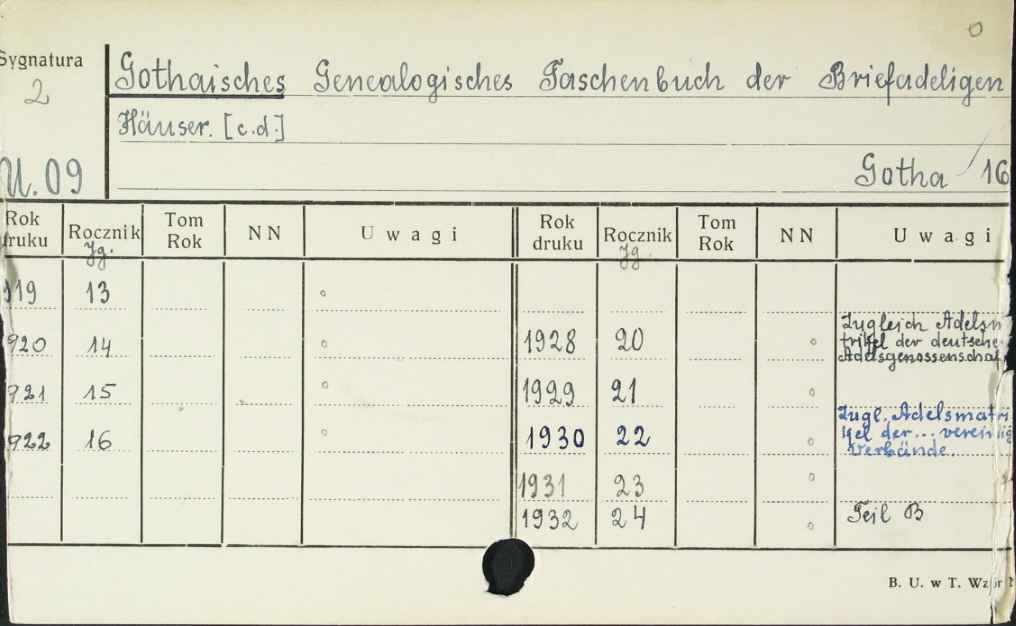 Sygnatura
2
U. 09
Gothaisches Genealogisches Taschenbuch der Briefadeligen
Häuser. [c.d.]
Gotha 16
Rok druku Rocznik Jg. Tom Rok NN Uwagi Rok druku Rocznik Jg. Tom Rok NN Uwagi
919 13
920 14 1928 20 Zugleich Adelsm
trikel der deutsche
Adelsgenossenschaf
921 15 1929 21
922 16 1930 22 Zugl. Adelsmatri
kel der... vereinig
Verbände.
1931 23
1932 24 Teil B
B. U. w T. Wzór